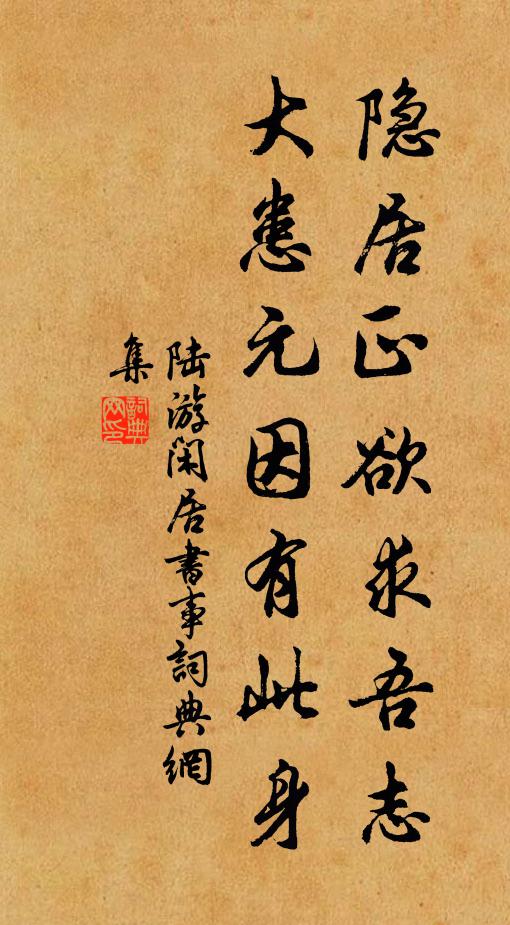 隐居正欲求吾志
大患元因有此身
陆游闲居书事词典網
集
詞典
网印